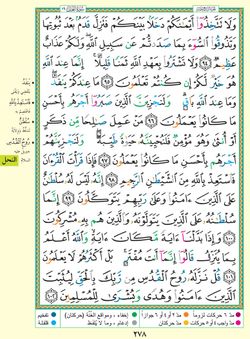 وَلَا تَتَّخِذُوٓا۟ أَيْمَـٰنَكُمْ دَخَلًۢا بَيْنَكُمْ فَتَزِلَّ قَدَمٌۢ بَعْدَ ثُبُوتِهَا
وَتَذُوقُوا۟ ٱلسُّوٓءَ بِمَا صَدَدتُّمْ عَن سَبِيلِ ٱللَّهِ وَلَكُمْ عَذَابٌ
عَظِيمٌ ٩٤ وَلَا تَشْتَرُوا۟ بِعَهْدِ ٱللَّهِ ثَمَنًا قَلِيلًا إِنَّمَا عِندَ ٱللَّهِ
هُوَ خَيْرٌ لَّكُمْ إِن كُنتُمْ تَعْلَمُونَ ٩٥ مَا عِندَكُمْ يَنفَدُ
وَمَا عِندَ ٱللَّهِ بَاقٍ وَلَنَجْزِيَنَّ ٱلَّذِينَ صَبَرُوٓا۟ أَجْرَهُم
بِأَحْسَنِ مَا كَانُوا۟ يَعْمَلُونَ ٩٦ مَنْ عَمِلَ صَـٰلِحًا مِّن ذَكَرٍ
أَوْ أُنثَىٰ وَهُوَ مُؤْمِنٌ فَلَنُحْيِيَنَّهُۥ حَيَوٰةً طَيِّبَةً وَلَنَجْزِيَنَّهُمْ
أَجْرَهُم بِأَحْسَنِ مَا كَانُوا۟ يَعْمَلُونَ ٩٧ فَإِذَا قَرَأْتَ ٱلْقُرْءَانَ
فَٱسْتَعِذْ بِٱللَّهِ مِنَ ٱلشَّيْطَـٰنِ ٱلرَّجِيمِ ٩٨ إِنَّهُۥ لَيْسَ لَهُۥ
سُلْطَـٰنٌ عَلَى ٱلَّذِينَ ءَامَنُوا۟ وَعَلَىٰ رَبِّهِمْ يَتَوَكَّلُونَ ٩٩ إِنَّمَا
سُلْطَـٰنُهُۥ عَلَى ٱلَّذِينَ يَتَوَلَّوْنَهُۥ وَٱلَّذِينَ هُم بِهِۦ مُشْرِكُونَ
١٠٠ وَإِذَا بَدَّلْنَآ ءَايَةً مَّكَانَ ءَايَةٍ وَٱللَّهُ أَعْلَمُ
بِمَا يُنَزِّلُ قَالُوٓا۟ إِنَّمَآ أَنتَ مُفْتَرٍۭ بَلْ أَكْثَرُهُمْ لَا يَعْلَمُونَ
١٠١ قُلْ نَزَّلَهُۥ رُوحُ ٱلْقُدُسِ مِن رَّبِّكَ بِٱلْحَقِّ لِيُثَبِّتَ
ٱلَّذِينَ ءَامَنُوا۟ وَهُدًى وَبُشْرَىٰ لِلْمُسْلِمِينَ ١٠٢
النحل
٢٧٨